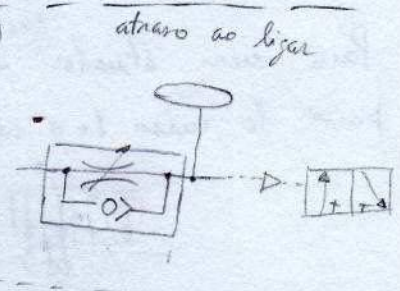 atraso ao ligar